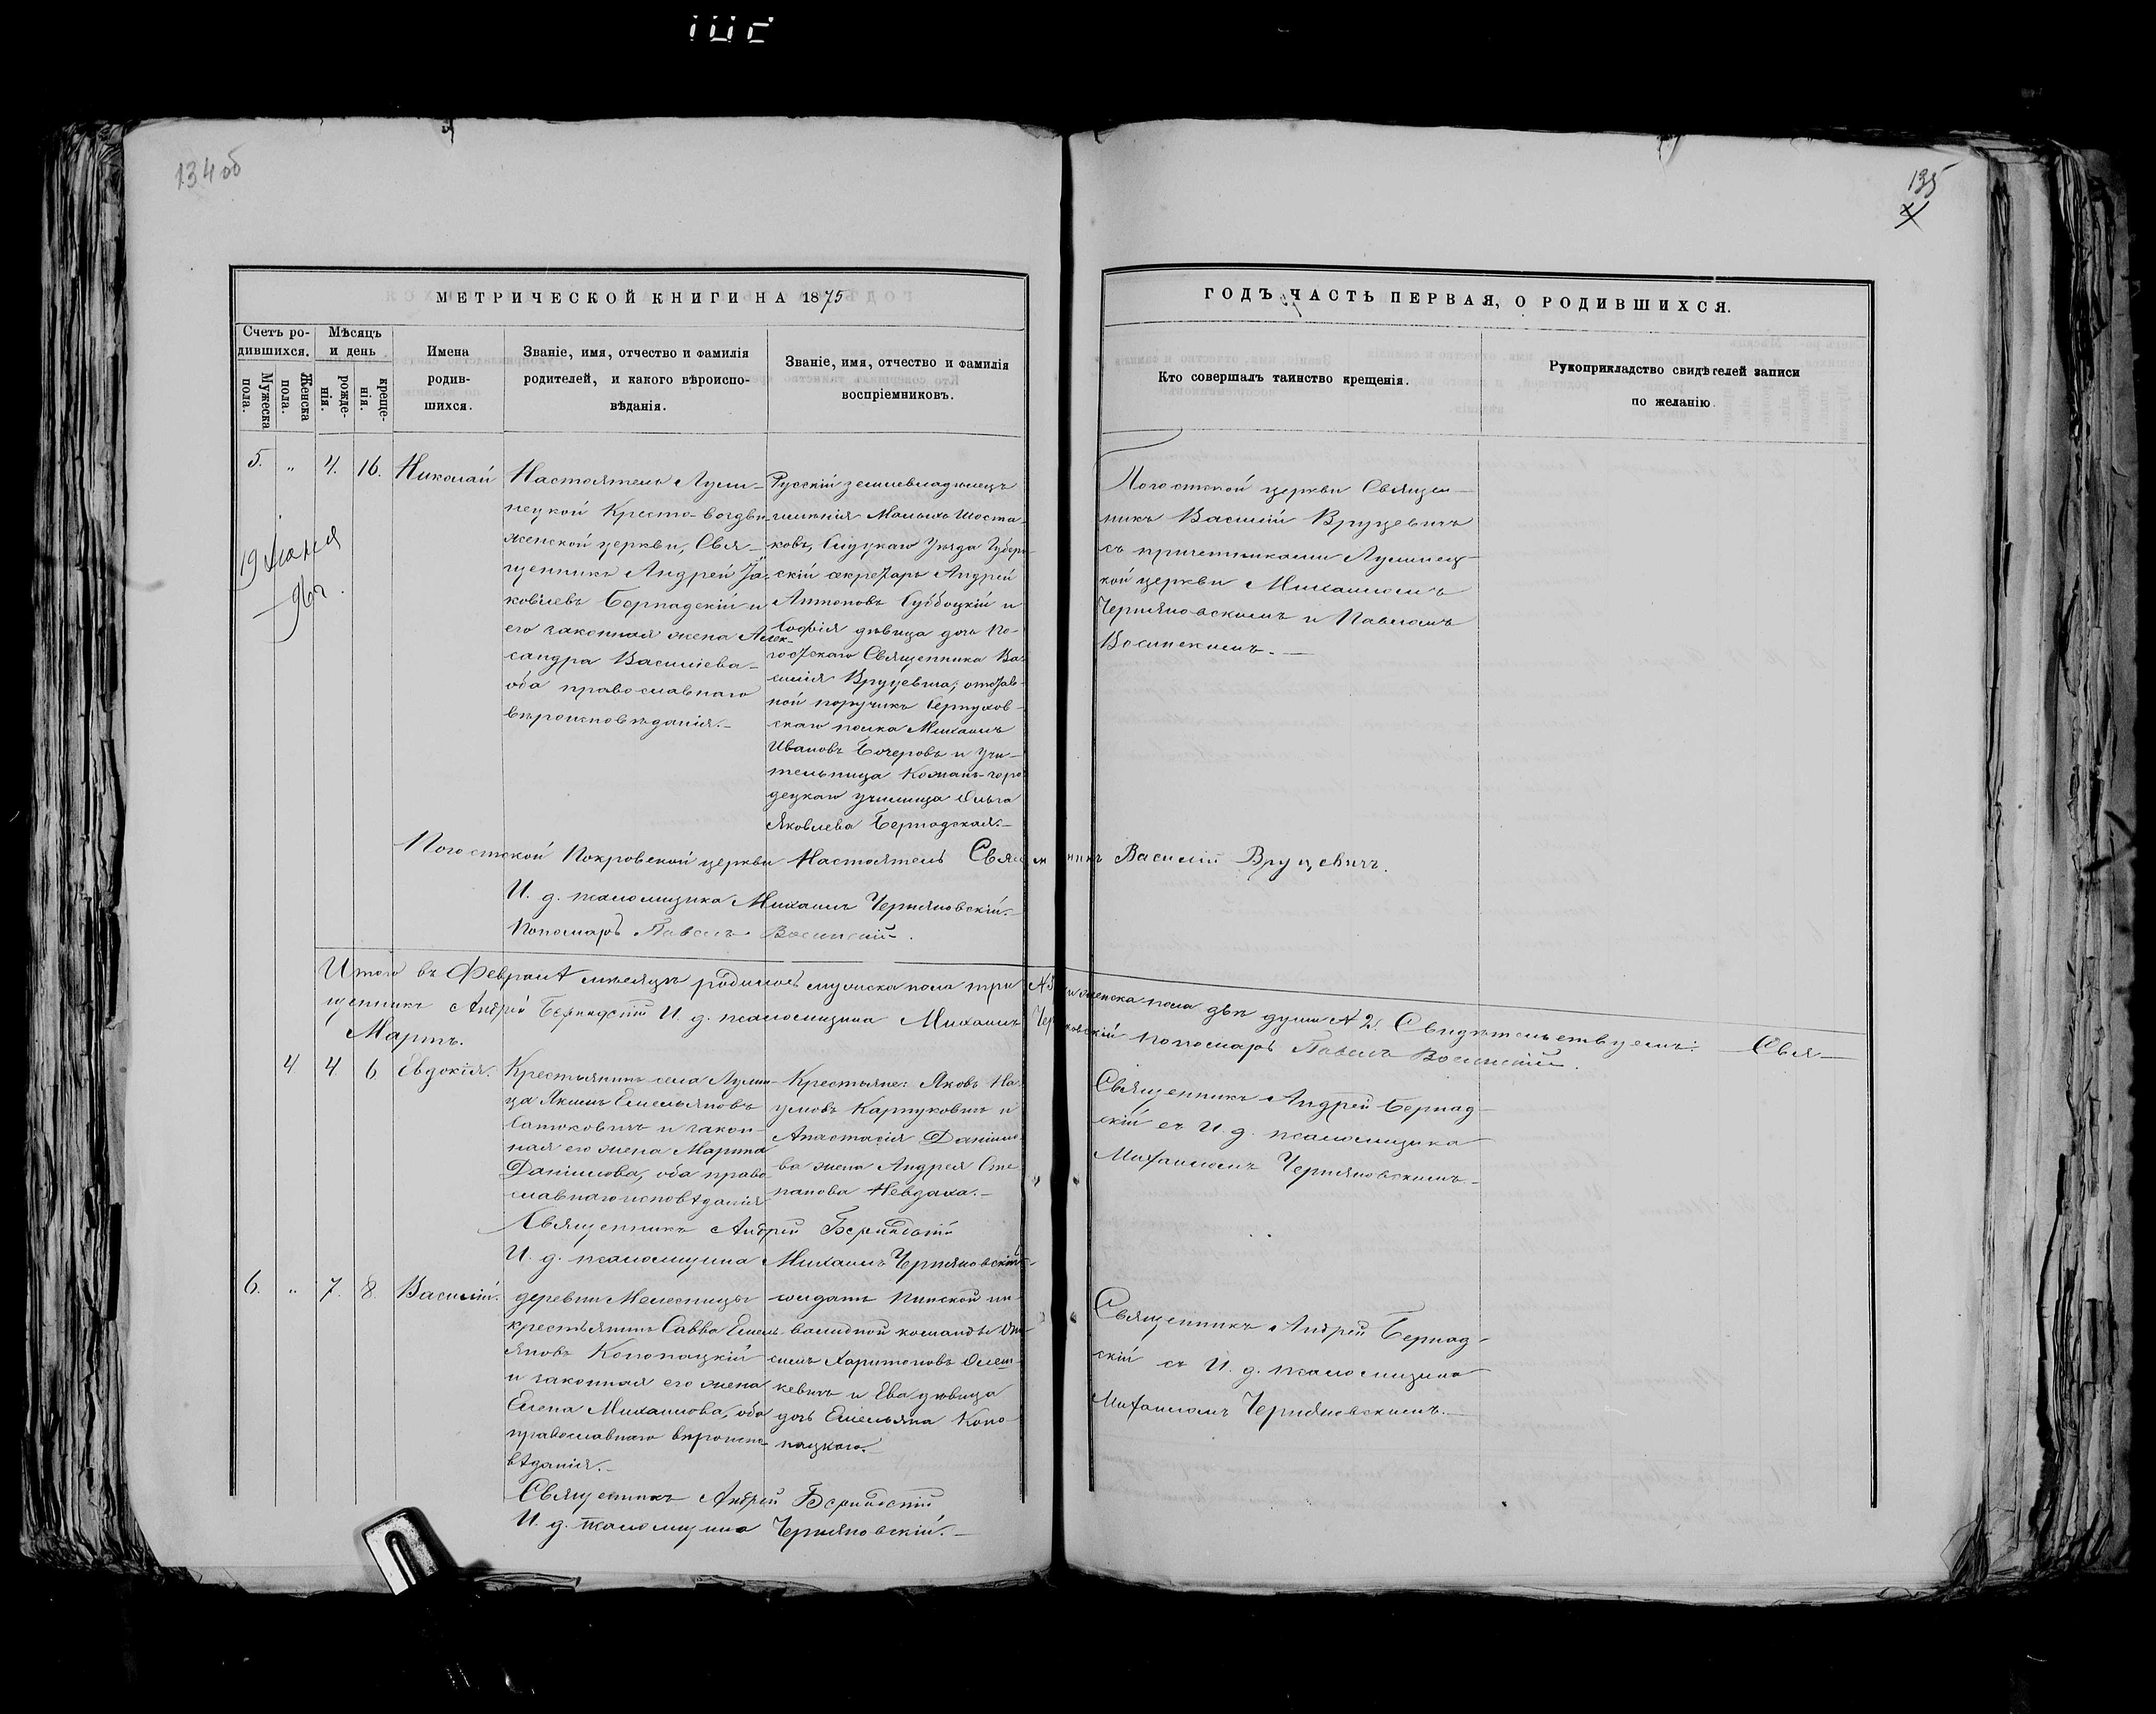 134 об
135
МЕТРИЧЕСКОЙ КНИГИ НА 1875
ГОДЪ, ЧАСТЬ ПЕРВАЯ, О РОДИВШИХСЯ.
Счетъ ро-
дившихся.
Мужеска
пола.
Женска
пола.
Мѣсяцъ
и день
рожде-
нія.
креще-
нія.
Имена
родив-
шихся.
Званіе, имя, отчество и фамилія
родителей, и какого вѣроиспо-
вѣданія.
Званіе, имя, отчество и фамилія
воспріемниковъ.
Кто совершалъ таинство крещенія.
Рукоприкладство свидѣтелей записи
по желанію.
5. „ 4. 16. Николай
Настоятель Луни-
нецкой Кресто-воздви-
женской церкви, Свя-
щенникъ Андрей Іа-
ковлевъ Бернадскій и
его законная жена Алек-
сандра Василіева
оба православнаго
вѣроисповѣданія.-
Русскій землевладѣлецъ
имѣнія Малыхъ Шоста-
ковъ, Слуцкаго Уѣзда Губерн-
скій секретарь Андрей
Антоновъ Субоцкій и
Софія дѣвица дочь По-
гостскаго Священника Ва-
силія Вруцевича; отстав-
ной поручикъ Серпухов-
скаго полка Михаилъ
Ивановъ Бочеровъ и Учи-
тельница Кожанъ-горо
децкаго училища Ольга
Яковлева Бернадская.-
Погостской церкви Священ-
никъ Василій Вруцевичъ
съ причетниками Лунинец-
кой церкви Михаиломъ
Черняновскимъ и Павломъ
19
96 г.
Погостской Покровской церкви Настоятель Священникъ Василій Вруцевичъ.
И. д. псаломщика Михаилъ Черняновскій.
Пономарь Павелъ
Итого въ Февралѣ мѣсяцѣ родилось мужска пола три и женска пола двѣ души № 2. Свидѣтельствуемъ: Свя-
щенникъ Андрей Бернадскій И. д. псаломщика Михаилъ Пономарь Павелъ
Мартъ.
4 4 6 Евдокія.
Крестьянинъ села Лунин-
ца Якимъ Емельяновъ
и закон-
ная его жена Марина
Даніилова, оба право-
славнаго исповѣданія
Крестьяне: Яковъ На-
умовъ Карпуковичъ и
Анастасія Даніило-
ва жена Андрея Сте-
панова Невдаха.-
Священникъ Андрей Бернад-
скій съ И. д. псаломщика
Михаиломъ Черняновскимъ.-
Священникъ Андрей Бернадскій
И. д. псаломщика Михаилъ Черняновскій
6. „ 7. 8. Василій.
деревни
крестьянинъ Савва Емель-
яновъ Конопацкій
и законная его жена
Елена Михаилова, оба
православнаго вѣроиспо-
вѣданія.-
солдатъ Пинской ин-
валидной команды
Харитоновъ
и Ева дѣвица
дочь Емельяна Коно-
пацкаго.-
Священникъ Андрей Бернад-
скій съ И. д. псаломщика
Михаиломъ Черняновскимъ.-
Священникъ Андрей Бернадскій
И. д. псаломщика Черняновскій.-